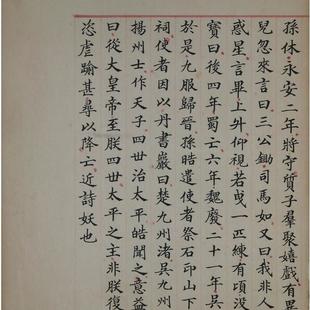 孫休永安二年將守質子羣聚嬉戲有異
兒忽來言曰三公鋤司馬如又曰我非人
惑星言畢上外仰視若曳一匹練有頃没
寳曰後四年蜀亡六年魏廢二十一年吳
於是九服歸晉孫皓遣使者祭石印山下
祠使者因以丹書巖曰楚九州渚吳九州
揚州士作天子四世治太平皓聞之意益
曰從大皇帝至朕四世太平之主非朕復
恣虐踰甚尋以降亡近詩妖也